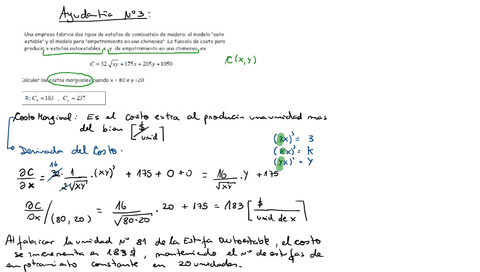 Ayudantía Nº3:
Una empresa fabrica dos tipos de estufas de combustión de madera: el modelo "auto
estable" y el modelo para "empotramiento en una chimenea". La función de costo para
producir x estufas autoestables e y de empotramiento en una chimenea, es:
C = 32√xy + 175x + 205y + 1050
C(x,y)
Calcular los costos marginales cuando x = 80 e y =20
R: Cₓ = 183 , Cᵧ = 237
Costo Marginal: Es el costo extra al producir una unidad mas
del bien [$/unid]
Derivada del Costo.
(3x)' = 3
(kx)' = K
(yx)' = y
∂C/∂x = 32 16 · 1/2√xy · (xy)' + 175 + 0 + 0 = 16/√xy · y + 175
∂C/∂x /(80,20) = 16/√80·20 · 20 + 175 = 183 [$/unid. de x]
Al fabricar la unidad Nº 81 de la Estufa Autoestable, el costo
se incrementa en 183$, manteniendo el Nº de estufas de
empotramiento constante en 20 unidades.